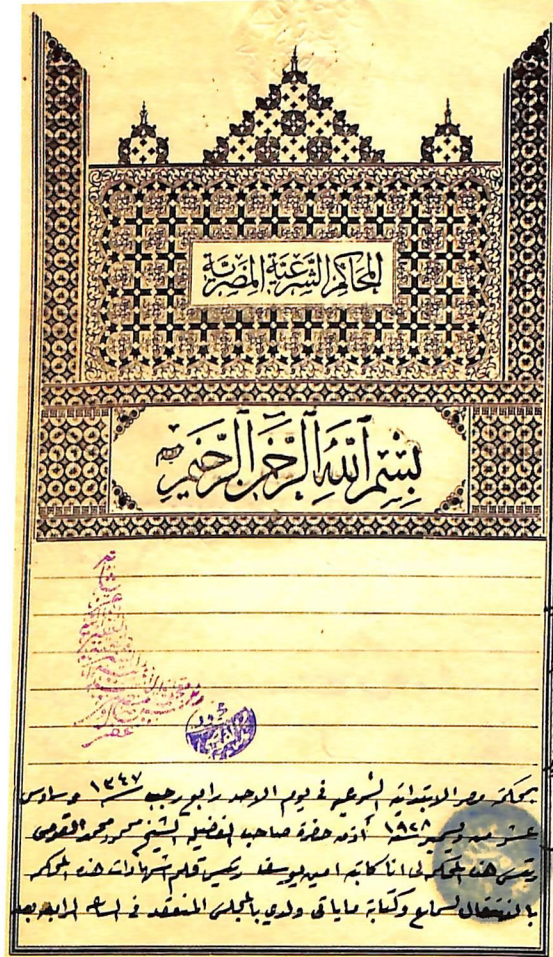 المحاكم الشرعية المصرية
بسم الله الرحمن الرحيم
بمحكمة مصر الابتدائية الشرعية في يوم الاحد رابع رجب سنة ١٣٤٧ وسادس
عشر من ديسمبر سنة ١٩٢٨ أذن حضرة صاحب الفضيلة الشيخ محمد
رئيس هذه المحكمة لي انا كاتبه امين يوسف رئيس قلم اشهادات هذه المحكمة
بالانتقال لسماع وكتابة ما يأتي ولدي بالمجلس المنعقد في الساعة الرابعة بعد